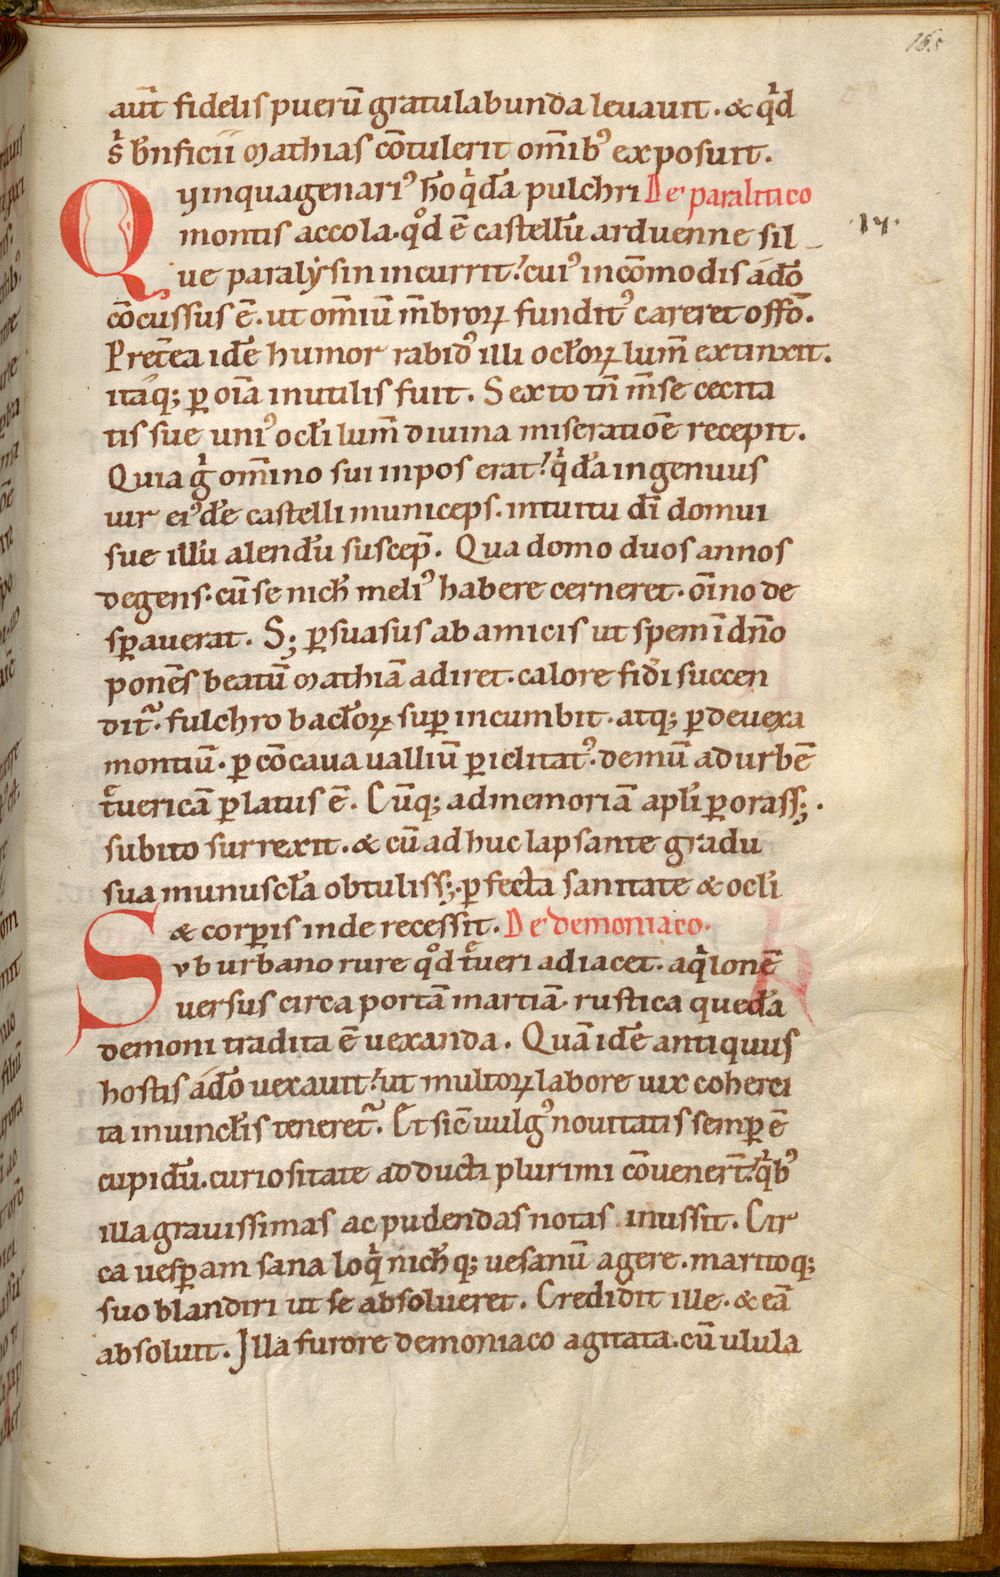 165
aut̄ fidelis puerū gratulabunda leuauit. & qͥd
sͥ bn̄ficii mathias cōtulerit om̄ibꝰ exposuit.
Quinquagenariꝰ hō qͥdā pulchri De paralitico
montis accola. qͦd ē castellū arduenne sil
14.
ue paralẏsin incurrit? cuiꝰ incōmodis adō
cōcussus ē. ut om̄iū m̄broꝝ funditꝰ careret offō.
Pret̄ea idē humor rabidꝰ illi ocl̄oꝝ lum̄ extinxit.
itaq; ꝑ oīa inutilis fuit. Sexto tn̄ m̄se cecita
tis sue uniꝰ ocl̄i lum̄ diuina miseratiōe recepit.
Quia gͥ om̄ino sui inpos erat? qͥdā ingenuus
uir eiꝰdē castelli municeps. intuitu dī domui
sue illū alendū suscep̄. Qua domo duos annos
degens. cū se nich̄ meliꝰ habere cerneret. oīno de
sꝑauerat. S; ꝑsuasus ab amicis ut spem ī dn̄o
ponēs beatū mathiā adiret. calore fidi succen
dit᷑. fulchro bacl̄oꝝ suꝑ incumbit. atq; ꝑ deuexa
montiū. ꝑ cōcaua ualliū ꝑiclitatꝰ. demū ad urbē
tͤuericā ꝑlatus ē. Cūq; ad memoriā apl̄i ꝑorass;.
subito surrexit. & cū adhuc lapsante gradu
sua munuscl̄a obtuliss;. ꝑfecta sanitate & ocl̄i
& corꝑis inde recessit. De demoniaco.
Sub urbano rure qͦd tͤueri adiacet. aqͥlonē
uersus circa portā martiā rustica quedā
demoni tradita ē uexanda. Quā idē antiquus
hostis adō uexauit? ut multoꝝ labore uix coherci
ta in uincl̄is teneret᷑. Et sic̄ uulgꝰ nouitatis semꝑ ē
cupidū. curiositate adducti plurimi cōuener̄t? qͥbꝰ
illa grauissimas ac pudendas notas inussit. Cir
ca uesꝑam sana loqͥ nich̄q; uesanū agere. maritoq;
suo blandiri ut se absolueret. Credidit ille. & eā
absoluit. Illa furore demoniaco agitata. cū ulula